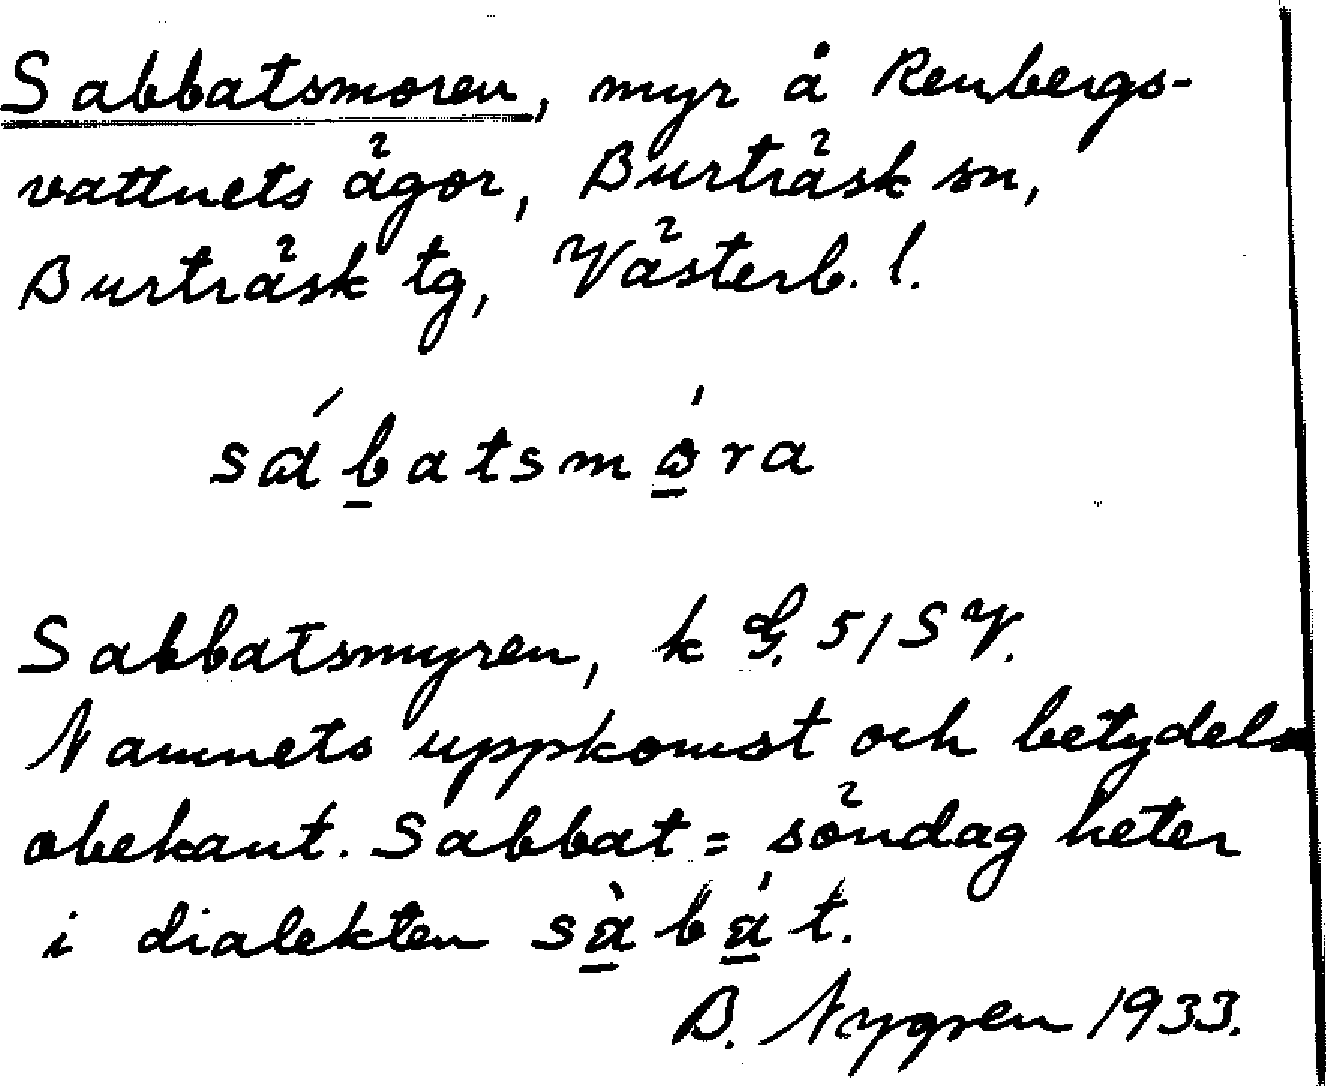 Sabbatsmoren, myr å Renbergs-
vattnets ägor, Burträsk sn,
Burträsk tg, Västerb. l.
sábatsmóra
Sabbatsmyren, k G. 51 S V.
Namnets uppkomst och betydelse
obekant. Sabbat = söndag heter
i dialekten sàbát.
B. Nygren 1933.